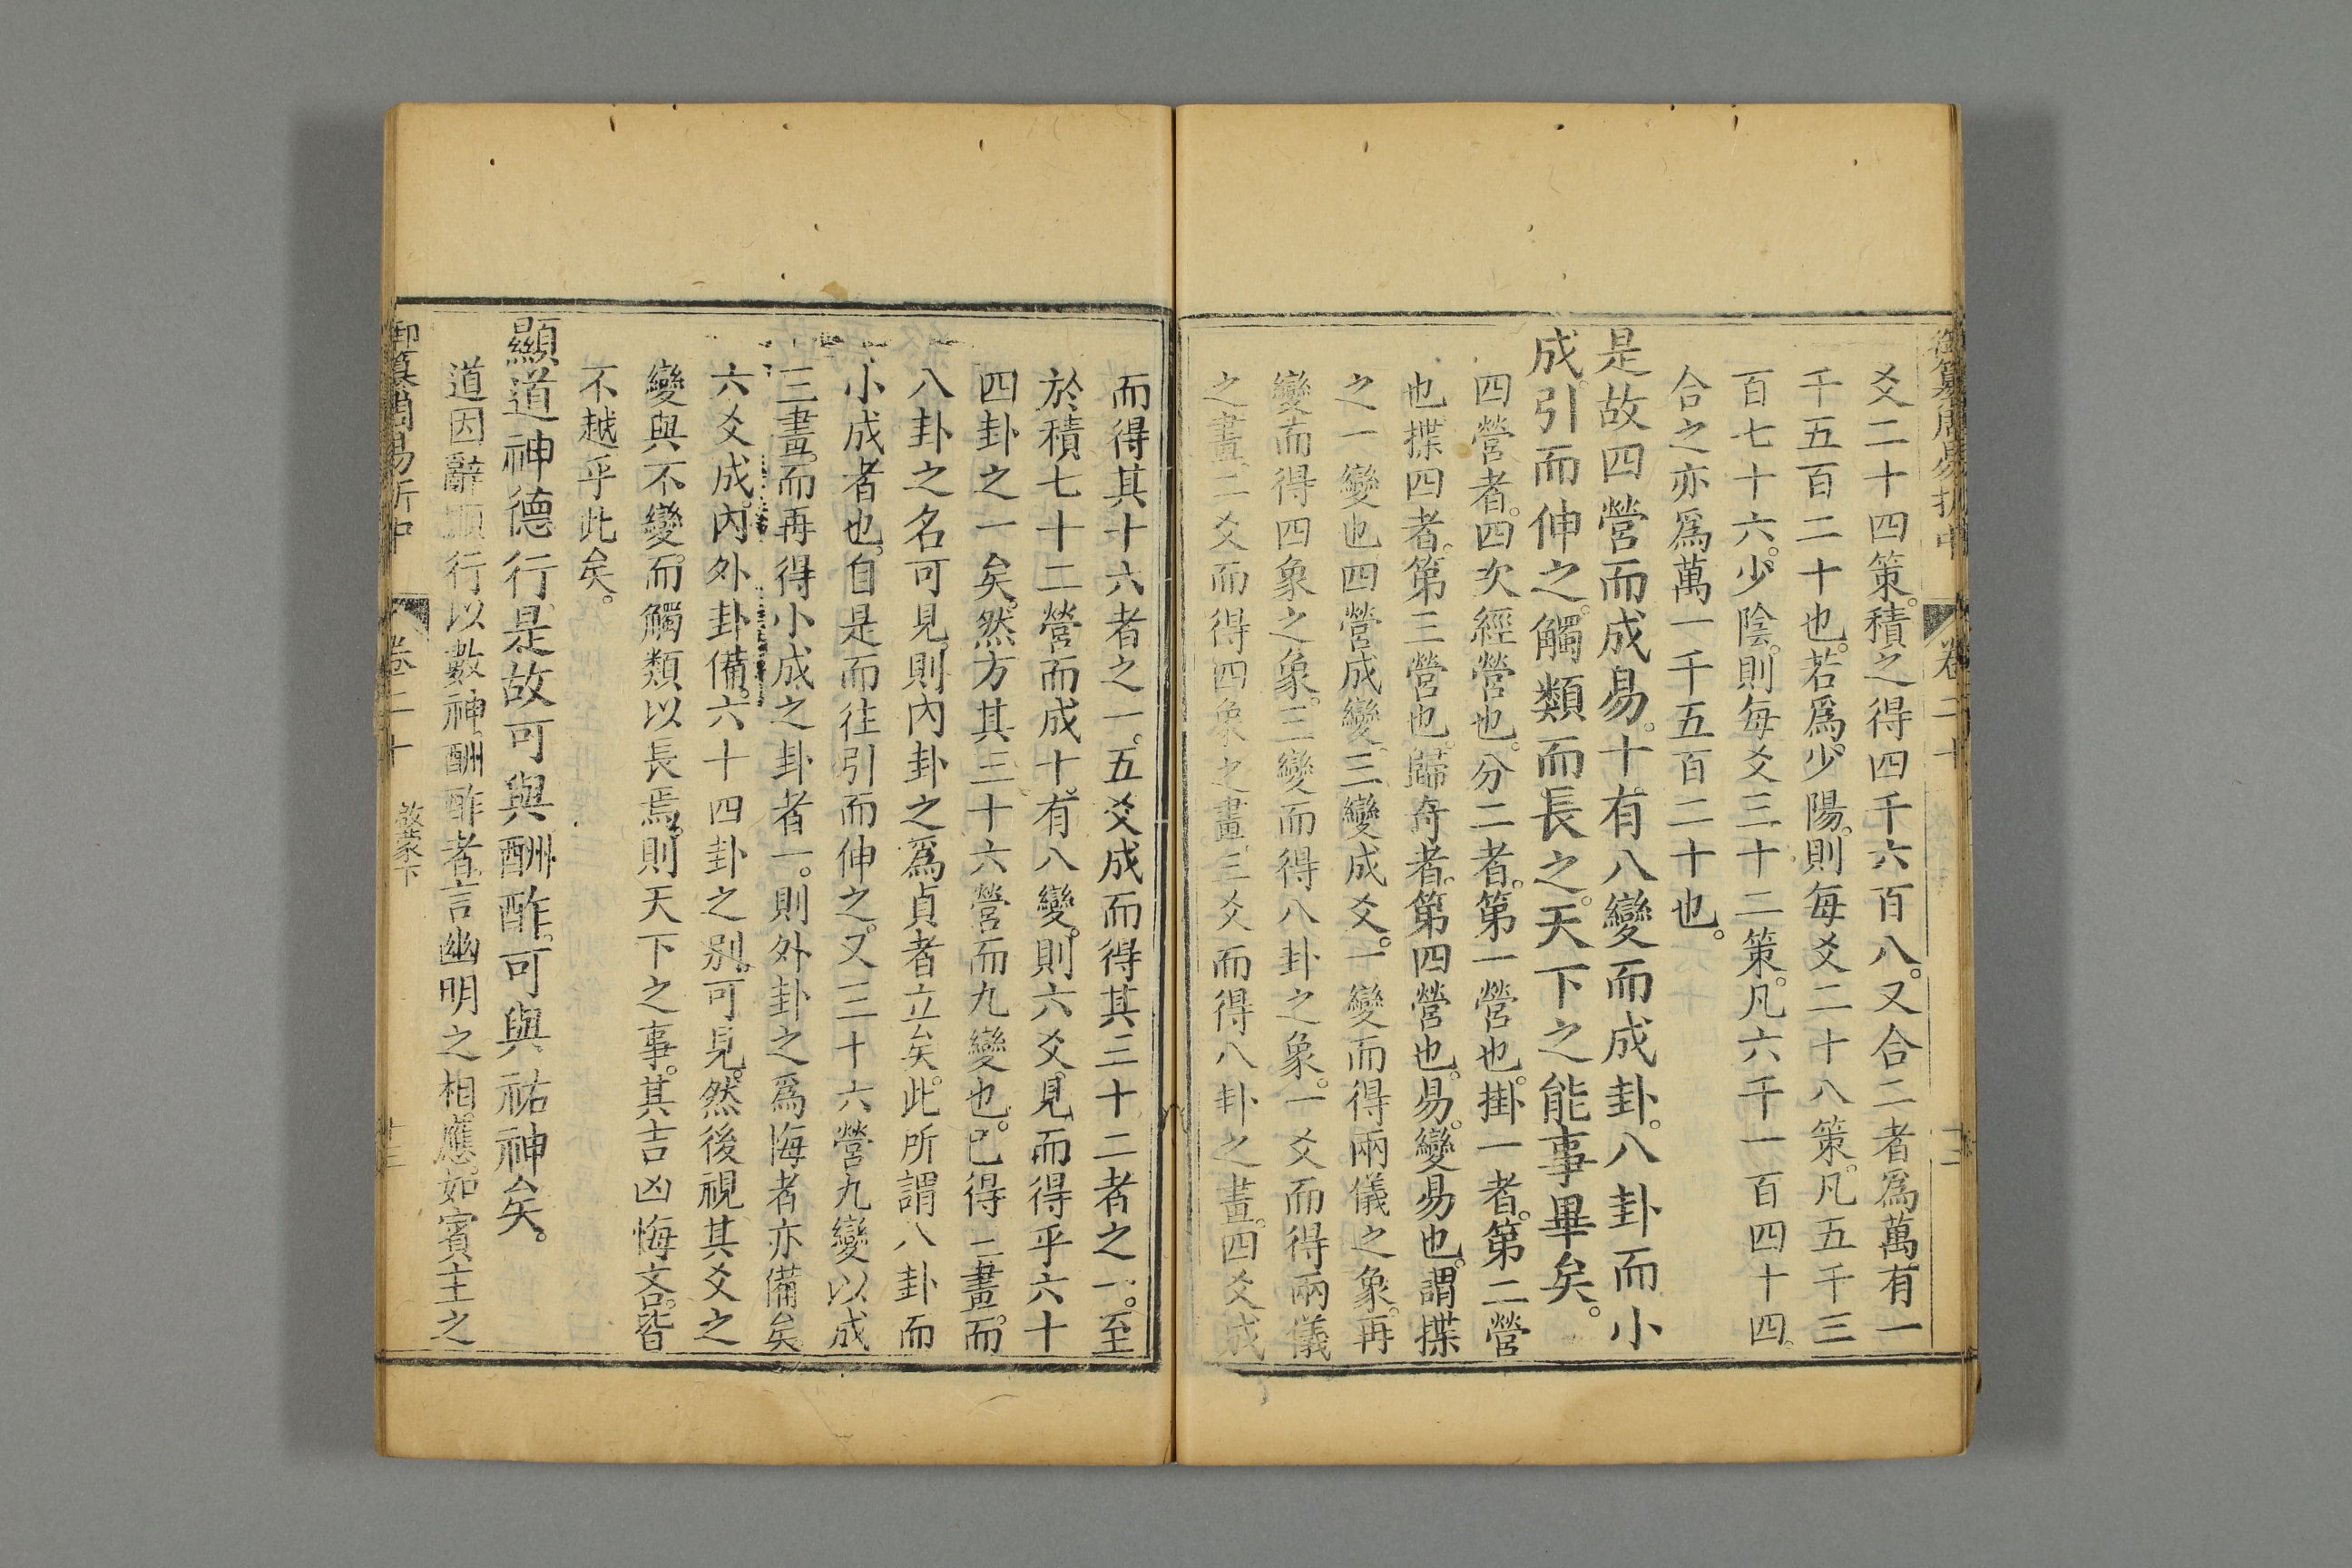 御纂周易折中
卷二十
十二
爻二十四策。積之得四千六百八。又合二者爲萬有一
千五百二十也。若爲少陽。則每爻二十八策。凡五千三
百七十六。少陰。則每爻三十二策。凡六千一百四十四。
合之亦爲萬一千五百二十也。
是故四營而成易。十有八變而成卦。八卦而小
成。引而伸之。觸類而長之。天下之能事畢矣。
四營者。四次經營也。分二者。第一營也。掛一者。第二營
也。揲四者。第三營也。歸奇者。第四營也。易。變易也。謂揲
之一變也。四營成變。三變成爻。一變而得兩儀之象。再
變而得四象之象。三變而得八卦之象。一爻而得兩儀
之畫。二爻而得四象之畫。三爻而得八卦之畫。四爻成
而得其十六者之一。五爻成而得其三十二者之一。至
於積七十二營而成十有八變。則六爻見。而得乎六十
四卦之一矣。然方其三十六營而九變也。已得三畫。而
八卦之名可見。則內卦之爲貞者立矣。此所謂八卦而
小成者也。自是而往。引而伸之。又三十六營九變以成
三畫。而再得小成之卦者一。則外卦之爲悔者亦備矣
六爻成。內外卦備。六十四卦之別。可見。然後視其爻之
變與不變。而觸類以長焉。則天下之事。其吉凶悔吝。皆
不越乎此矣。
顯道神德行。是故可與酬酢。可與祐神矣。
道因辭顯。行以數神。酬酢者。言幽明之相應。如賓主之
御纂周易折中
卷二十
啟蒙下
十三